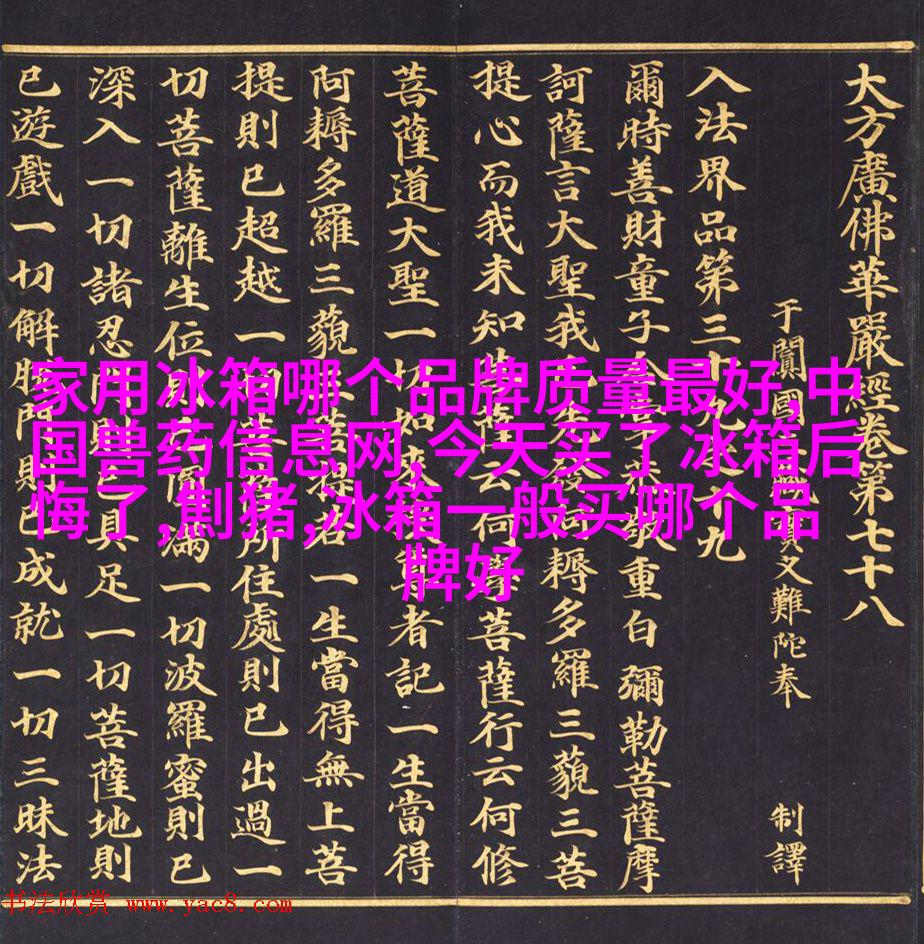 大方廣佛華嚴經卷第七十八
于闐國三藏實叉難陀奉 制譯
入法界品第三十九之十九
爾時善財童子合掌恭敬重白彌勒菩薩摩
訶薩言大聖我已先發阿耨多羅三藐三菩
提心而我未知菩薩云何學菩薩行云何修
菩薩道大聖一切如來授尊者記一生當得
阿耨多羅三藐三菩提若一生當得無上菩
提則已超越一切菩薩所住處則已出過一
切菩薩離生位則已圓滿一切波羅蜜則已
深入一切諸忍門則已具足一切菩薩地則
已遊戲一切解脫門則已成就一切三昧法
家用冰箱哪个品牌质量最好,中
国兽药信息网,今天买了冰箱后
悔了,劁猪,冰箱一般买哪个品
牌好
书法欣赏 www.yac8.com